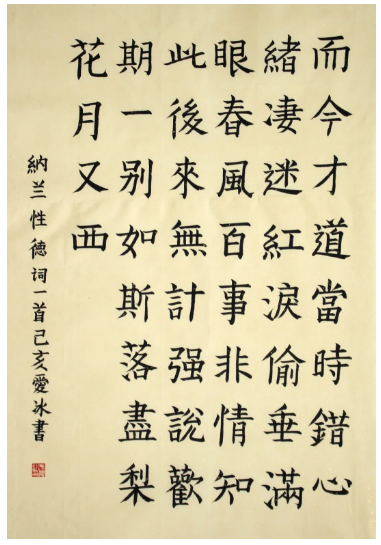 而今才道當時錯心
緒凄迷紅淚偷垂滿
眼春風百事非情知
此後來無計强說歡
期一别如斯落盡梨
花月又西
納兰性德词一首己亥愛冰書